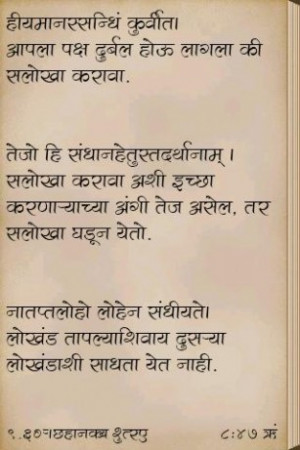 हीयमानस्सन्धिं कुर्वीत।
आपला पक्ष दुर्बल होऊ लागला की
सलोखा करावा.
तेजो हि संधानहेतुस्तदर्थानाम् ।
सलोखा करावा अशी इच्छा
करणाऱ्याच्या अंगी तेज असेल, तर
सलोखा घडून येतो.
नातप्तलोहो लोहेन संधीयते।
लोखंड तापल्याशिवाय दुसऱ्या
लोखंडाशी साधता येत नाही.